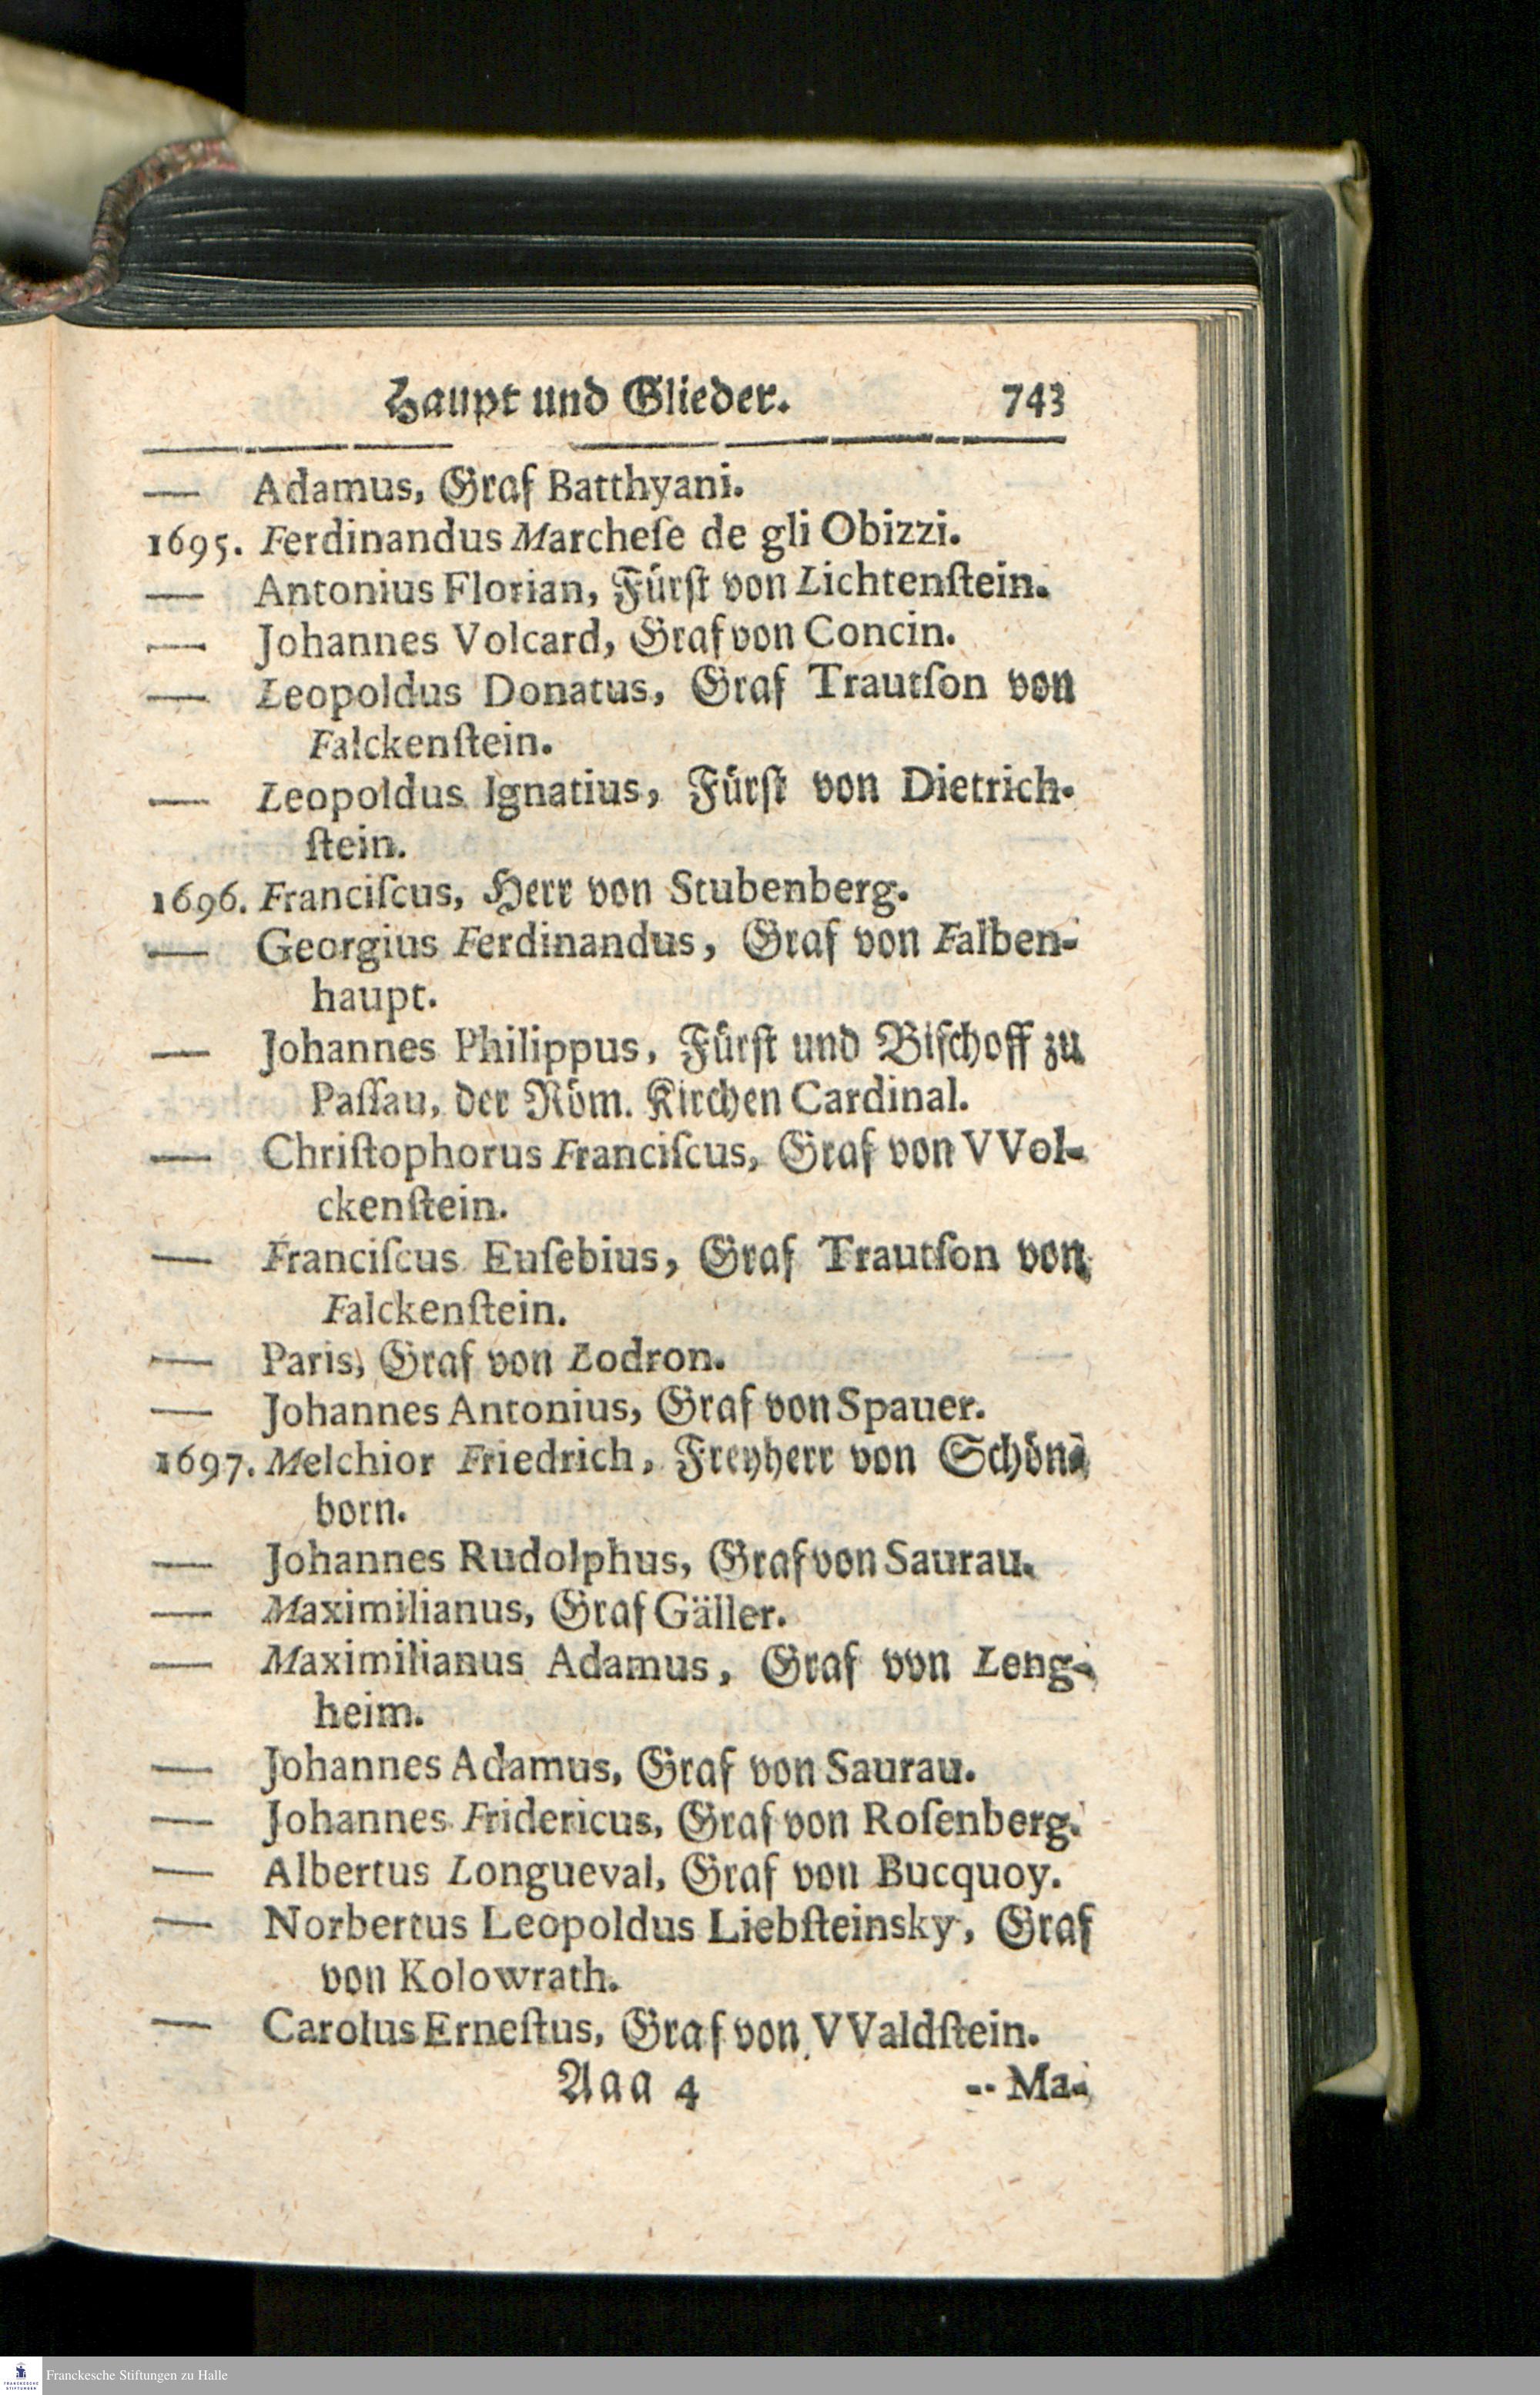 Haupt und Glieder. 743
— Adamus, Graf Batthyani.
1695. Ferdinandus Marcheſe de gli Obizzi.
— Antonius Florian, Fürſt von Lichtenſtein.
— Johannes Volcard, Graf von Concin.
— Leopoldus Donatus, Graf Trautſon von
Falckenſtein.
— Leopoldus Ignatius, Fürſt von Dietrich-
ſtein.
1696. Franciſcus, Herr von Stubenberg.
— Georgius Ferdinandus, Graf von Falben-
haupt.
— Johannes Philippus, Fürſt und Biſchoff zu
Paſſau, der Röm. Kirchen Cardinal.
— Chriſtophorus Franciſcus, Graf von VVol-
ckenſtein.
— Franciſcus Euſebius, Graf Trautſon von
Falckenſtein.
— Paris, Graf von Lodron.
— Johannes Antonius, Graf von Spauer.
1697. Melchior Friedrich, Freyherr von Schön-
born.
— Johannes Rudolphus, Graf von Saurau.
— Maximilianus, Graf Gäller.
— Maximilianus Adamus, Graf von Leng-
heim.
— Johannes Adamus, Graf von Saurau.
— Johannes Fridericus, Graf von Roſenberg.
— Albertus Longueval, Graf von Bucquoy.
— Norbertus Leopoldus Liebſteinsky, Graf
von Kolowrath.
— Carolus Erneſtus, Graf von VValdſtein.
Aaa 4 -- Ma-
FRANCKESCHE STIFTUNGEN Franckesche Stiftungen zu Halle